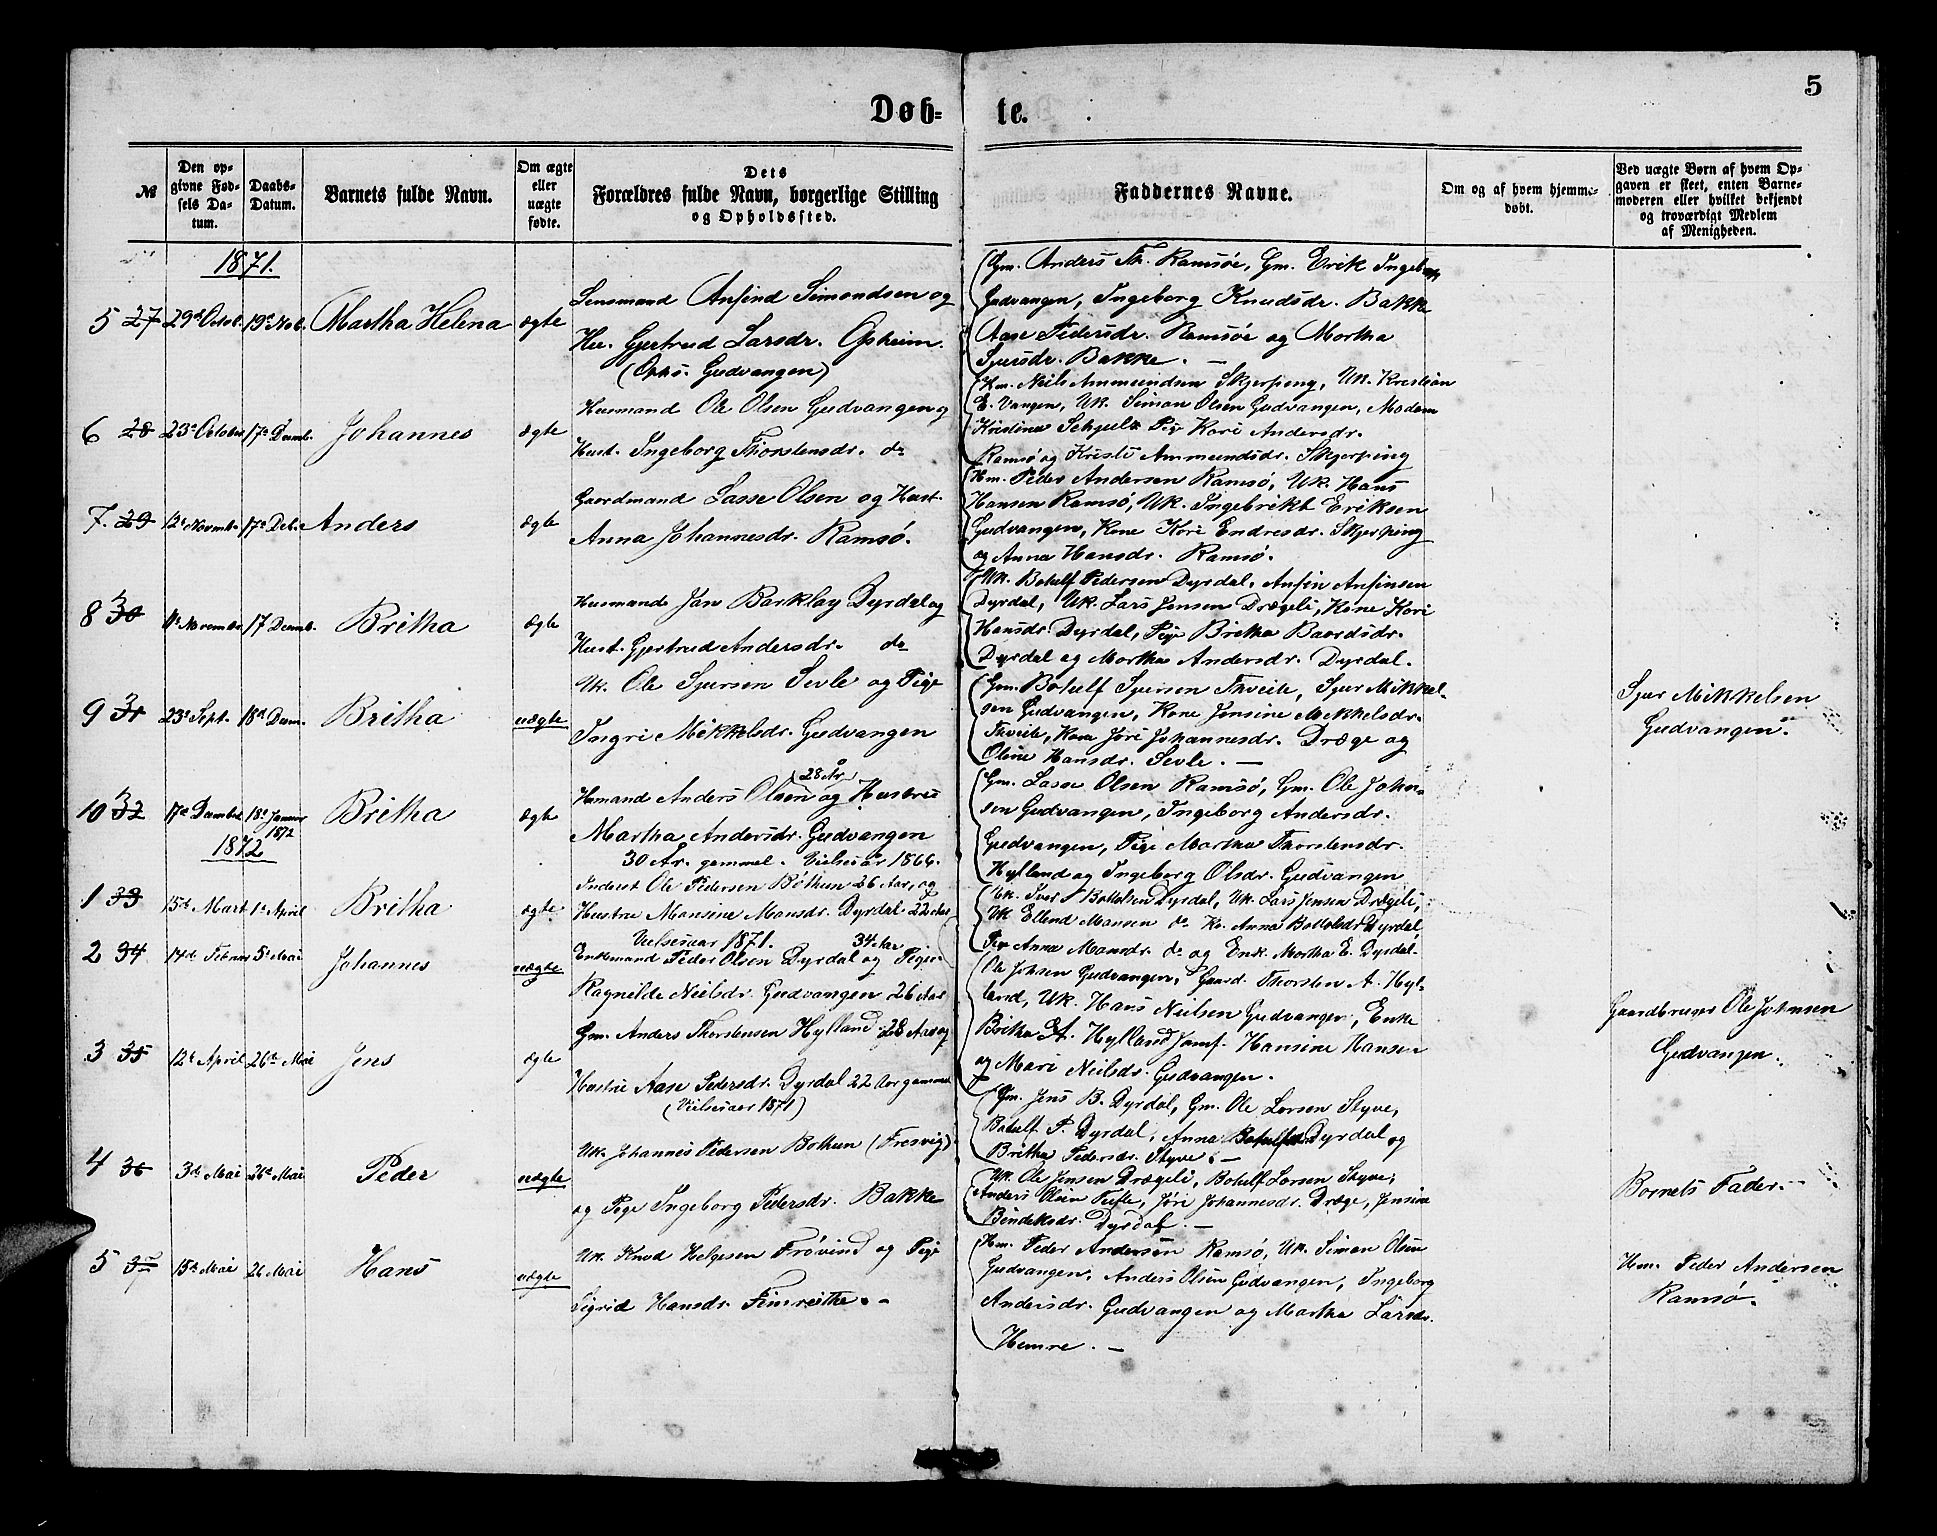 5
Døb=
te.
№
Den op-
givne Fød-
sels Da-
tum.
Daabs-
Datum.
Barnets fulde Navn.
Om ægte
eller
uægte
fødte.
Dets
Forældres fulde Navn, borgerlige Stilling
og Opholdssted.
Faddernes Navne.
Om og af hvem hjemme-
døbt.
Ved uægte Børn af hvem Op-
gaven er skeet, enten Barne-
moderen eller hvilket bekjendt
og troværdigt Medlem
af Menigheden.
1871.
5 27 29de Octob. 19de Nob. Martha Helena ægte
Lensmand Anfind Simondsen og
Hu. Gjertrud Larsdr. Opheim.
(Opks. Gudvangen)
Gm. Anders Th. Ramsøe, Gm. Erik Ingeb
Gudvangen, Ingeborg Knudsdr. Bakke
Aase Pedersdr. Ramsøe og Martha
Sjursdr. Bakke. —
6 28 23de October 17de Decemb. Johannes ægte
Husmand Ole Olsen Gudvangen og
Hust. Ingeborg Thorstensdr. do
Hm. Neils Ammundsen Skjerping, Uk. Kristian
E. Vangen, Uk. Simon Olsen Gudvangen, Madam
Kristina Schjelt Pige Kari Andersdr.
Ramsø og Kristi Ammundsdr. Skjerping
7. 29 12te Novmb. 17de Deb. Anders ægte
Gaardmand Lasse Olsen og Hust.
Anna Johannesdr. Ramsø.
Hm. Peder Andersen Ramsø, Uk. Hans
Hansen Ramsø, Uk. Ingebrikt Eriksen
Gudvangen, Kone Kari Endresdr. Skjerping
og Anna Hansdr. Ramsø.
8 30 11te Novembr. 17 Decmb. Britha ægte
Husmand Jan Barklay Dyrdal og
Hust. Gjertrud Andersdr. do
Uk. Botulf Pedersen Dyrdal, Anfin Anfinsen
Dyrdal, Uk. Lars Jensen Drægeli, Kone Kari
Hansdr. Dyrdal, Pige Britha Baardsdr.
Dyrdal og Martha Andersdr. Dyrdal.
9 31 23de Sept. 18de Decm. Britha uægte
Uk. Ole Sjursen Sevle og Pige
Ingri Mikkelsdr. Gudvangen
Gm. Botulf Sjursen Thveite, Sjur Mikkel-
sen Gudvangen, Kone Jensine Mikkelsdr.
Thveite, Kone Jøri Johannesdr. Dræge og
Oline Hansdr. Sevle. —
Sjur Mikkelsen
Gudvangen.
10 32 17de Decmber 18de Januar
1872 Britha ægte
(28 Ar)
Husmand Anders Olsen og Hustrue
Martha Andersdr. Gudvangen
30 Ar. gammel. Vielsesaar 1866.
Gm. Lasse Olsen Ramsø, Gm. Ole John-
sen Gudvangen, Ingeborg Andersdr.
Gudvangen, Pige Martha Thorstensdr.
Hylland og Ingeborg Olsdr. Gudvangen
1872
1 33 15de Mart 1te April Britha ægte
Inderst Ole Pedersen Bøthun 26 Aar, og
Hustru Mansine Mansdr. Dyrdal 22 Aar
Vielsesaar 1871.
Uk. Iver Bottolsen Dyrdal, Uk. Lars Jensen Drægeli,
Uk Ellend Mansen do Ko. Anna Bottolsdr Dyrdal,
Pige Anna Mansdr. do og Enk. Martha E. Dyrdal.
2 34 14de Februar 5te Mai Johannes uægte
34 Aar
Enkemand Peder Olsen Dyrdal og Pige
Ragnilde Nielsdr. Gudvangen 26 Aar
Ole Johsen Gudvangen, Gaard. Thorsten A. Hyl-
land, Uk. Hans Nielsen Gudvangen, Enke
Britha A. Hylland Jomf. Hansine Hansen
og Mari Neilsdr. Gudvangen.
Gaardbruger Ole Johnsen
Gudvangen.
3 35 12te April 26de Mai Jens ægte
Gm. Anders Thorstensen Hylland 28 Aar og
Hustru Aase Pedersdr. Dyrdal 22 Aar gammel
(Vielsesaar 1871)
Gm. Jens B. Dyrdal, Gm. Ole Larsen Styve,
Botulf P. Dyrdal, Anna Botulfsdr Dyrdal og
Britha Pedersdr. Styve. —
4 36 3de Mai 26de Mai Peder uægte
Uk. Johannes Pedersen Bothun (Fresvig)
og Pige Ingeborg Pedersdr. Bakke
Uk. Ole Jensen Drægeli, Botulf Larsen Styve,
Anders Olsen Tufte, Jøri Johannesdr. Dræge, Jensine
Bendiksdr. Dyrdal. —
Barnets Fader.
5 37 15de Mai 26 Mai Hans uægte
Uk. Knud Helgesen Frøvind og Pige
Sigrid Hansdr. Fimreithe. -
Hm. Peder Andersen Ramsø, Uk. Simon Olsen
Gudvangen, Anders Olsen Gudvangen, Ingeborg
Andersdr. Gudvangen og Martha Larsdr.
Hemre. —
Hm. Peder Andersen
Ramsø.